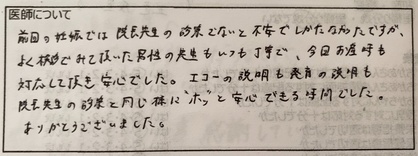 医師について
前回の妊娠では院長先生の診察でないと不安でしかたなかったですが、
よく検診でみて頂いた男性の先生もいつも丁寧で、今回お産時も
対応して頂き安心でした。エコーの説明も発育の説明も
院長先生の診察と同じ様に"ホッ"と安心できる時間でした。
ありがとうございました。